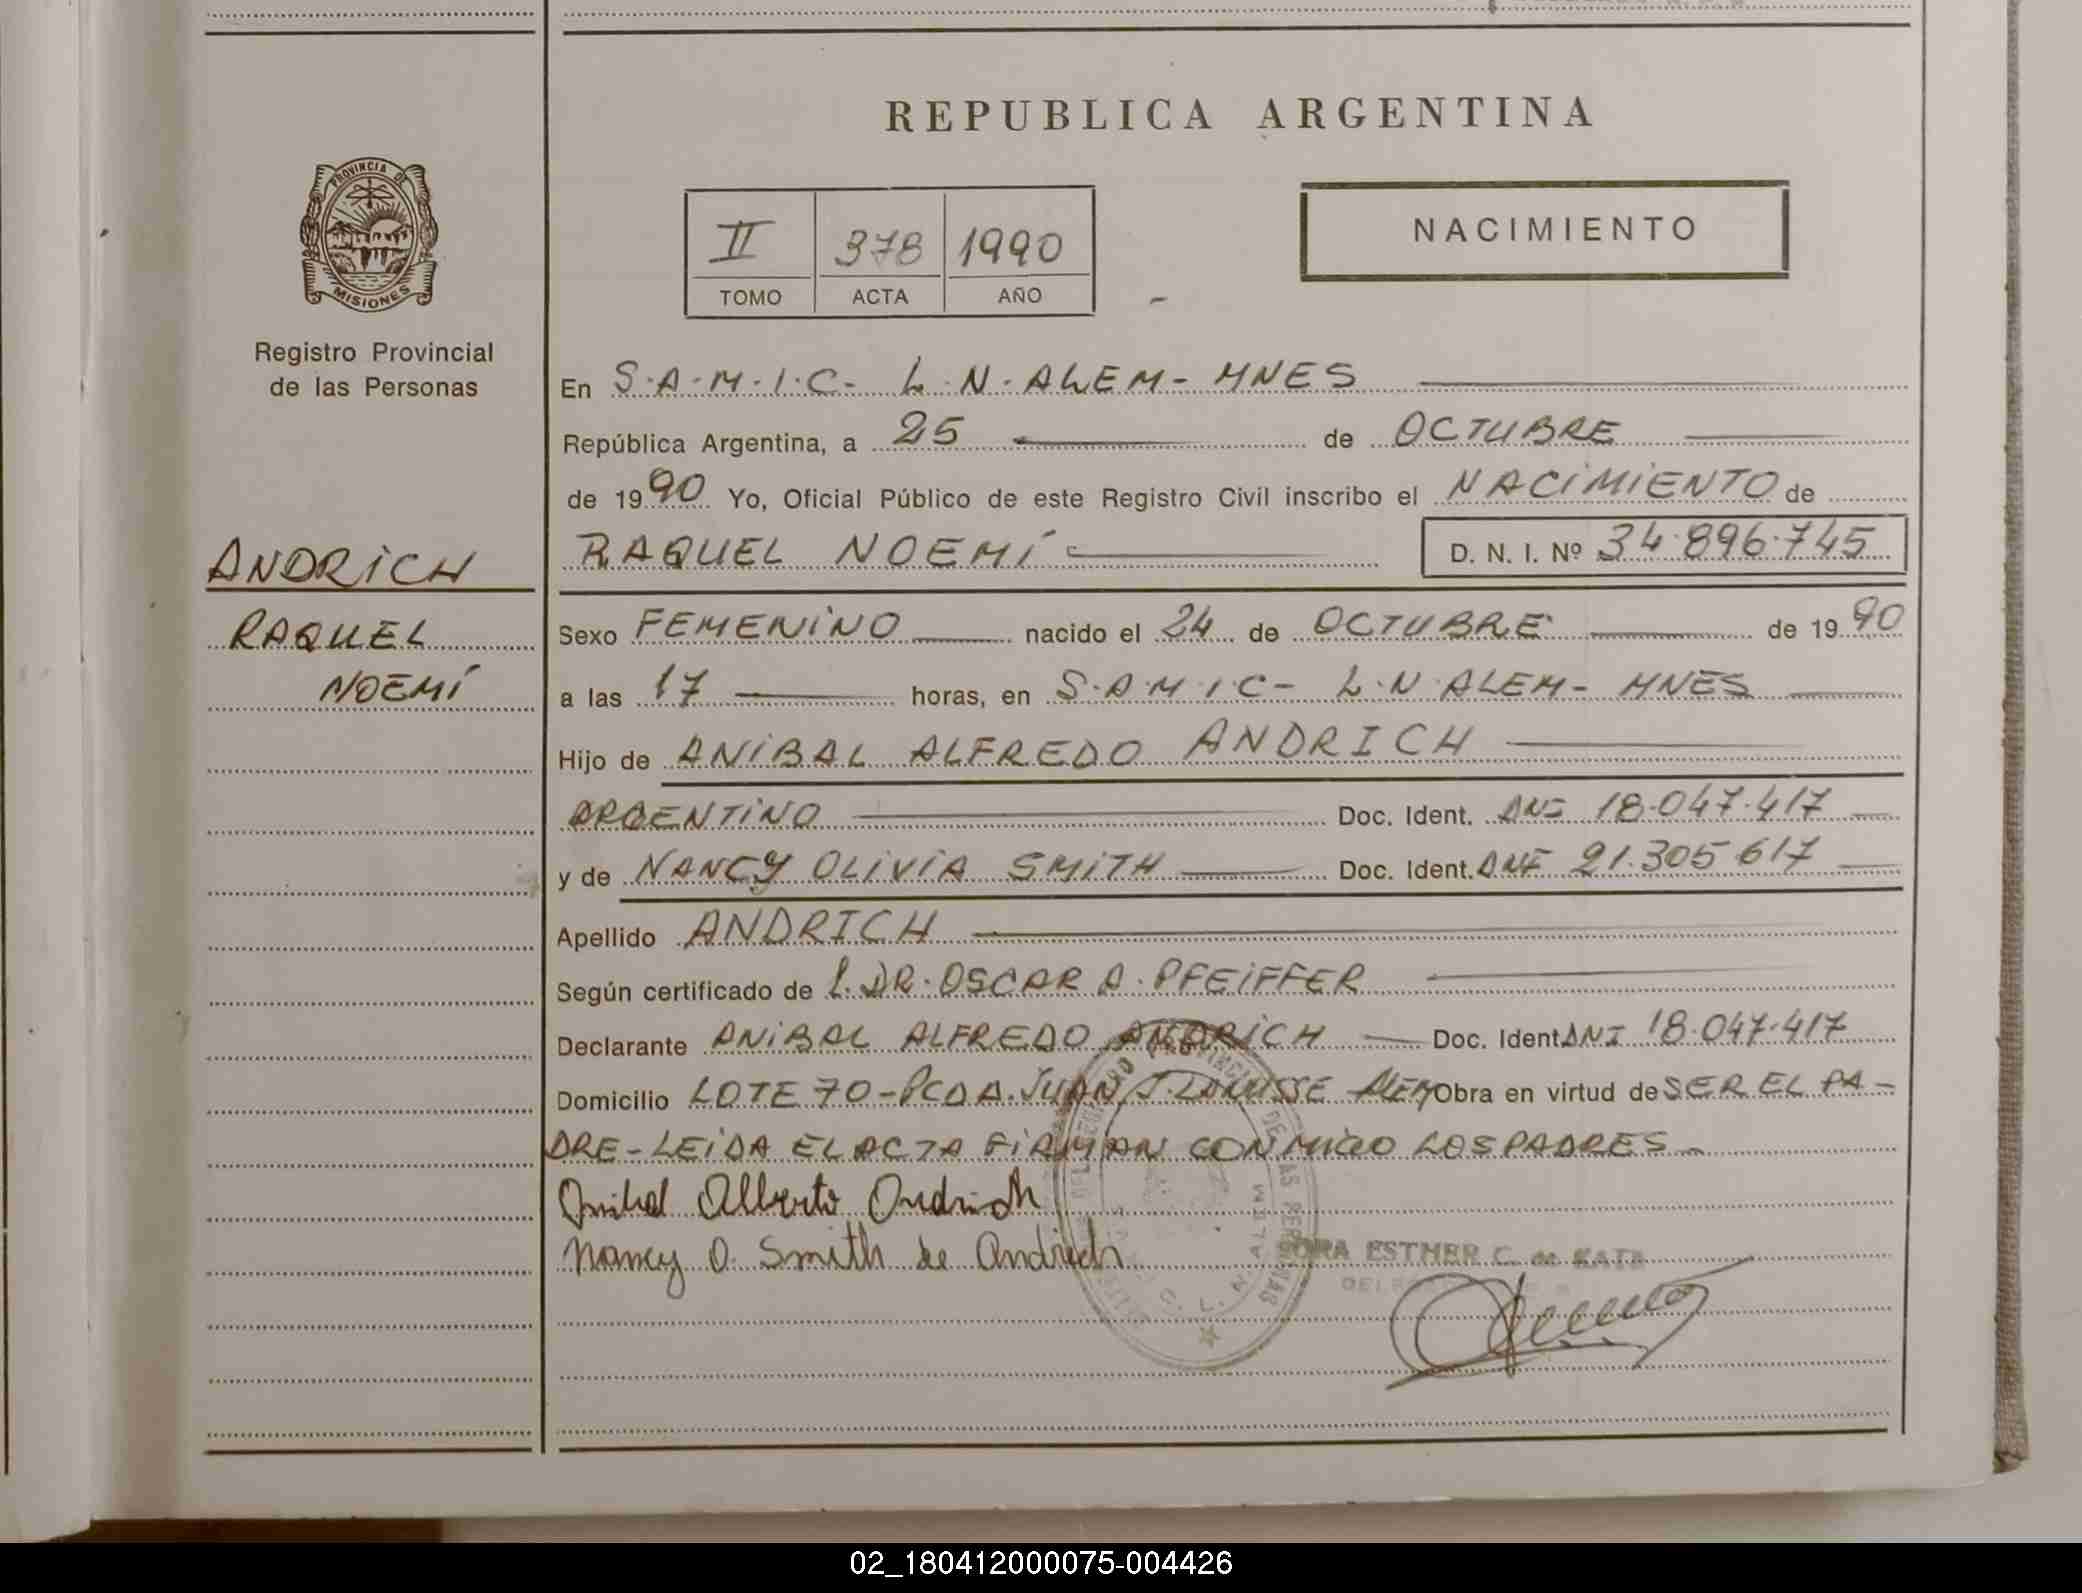 REPUBLICA ARGENTINA
PROVINCIA DE
MISIONES
Registro Provincial
de las Personas
II 378 1990
TOMO ACTA AÑO
NACIMIENTO
En S.A.M.I.C- L.N.ALEM- MNES
República Argentina, a 25 de OCTUBRE
de 1990 Yo, Oficial Público de este Registro Civil inscribo el NACIMIENTO de
RAQUEL NOEMÍ D. N. I. Nº 34.896.745
ANDRICH
RAQUEL
NOEMÍ
Sexo FEMENINO nacido el 24 de OCTUBRE de 1990
a las 17 horas, en S.A.M.I.C- L.N.ALEM- MNES
Hijo de ANIBAL ALFREDO ANDRICH
ARGENTINO Doc. Ident. DNI 18.047.417
y de NANCY OLIVIA SMITH Doc. Ident. DNI 21.305.617
Apellido ANDRICH
Según certificado de L. DR. OSCAR A. PFEIFFER
Declarante ANIBAL ALFREDO ANDRICH Doc. Ident DNI 18.047.417
Domicilio LOTE 70-PCDA.JUAN J.LANUSSE ALEM Obra en virtud de SER EL PA-
DRE-LEIDA EL ACTA FIRMAN CONMIGO LOS PADRES-
Anibal Alberto Andrich
Nancy O. Smith de Andrich
ESTHER C. de KATA
02_180412000075-004426